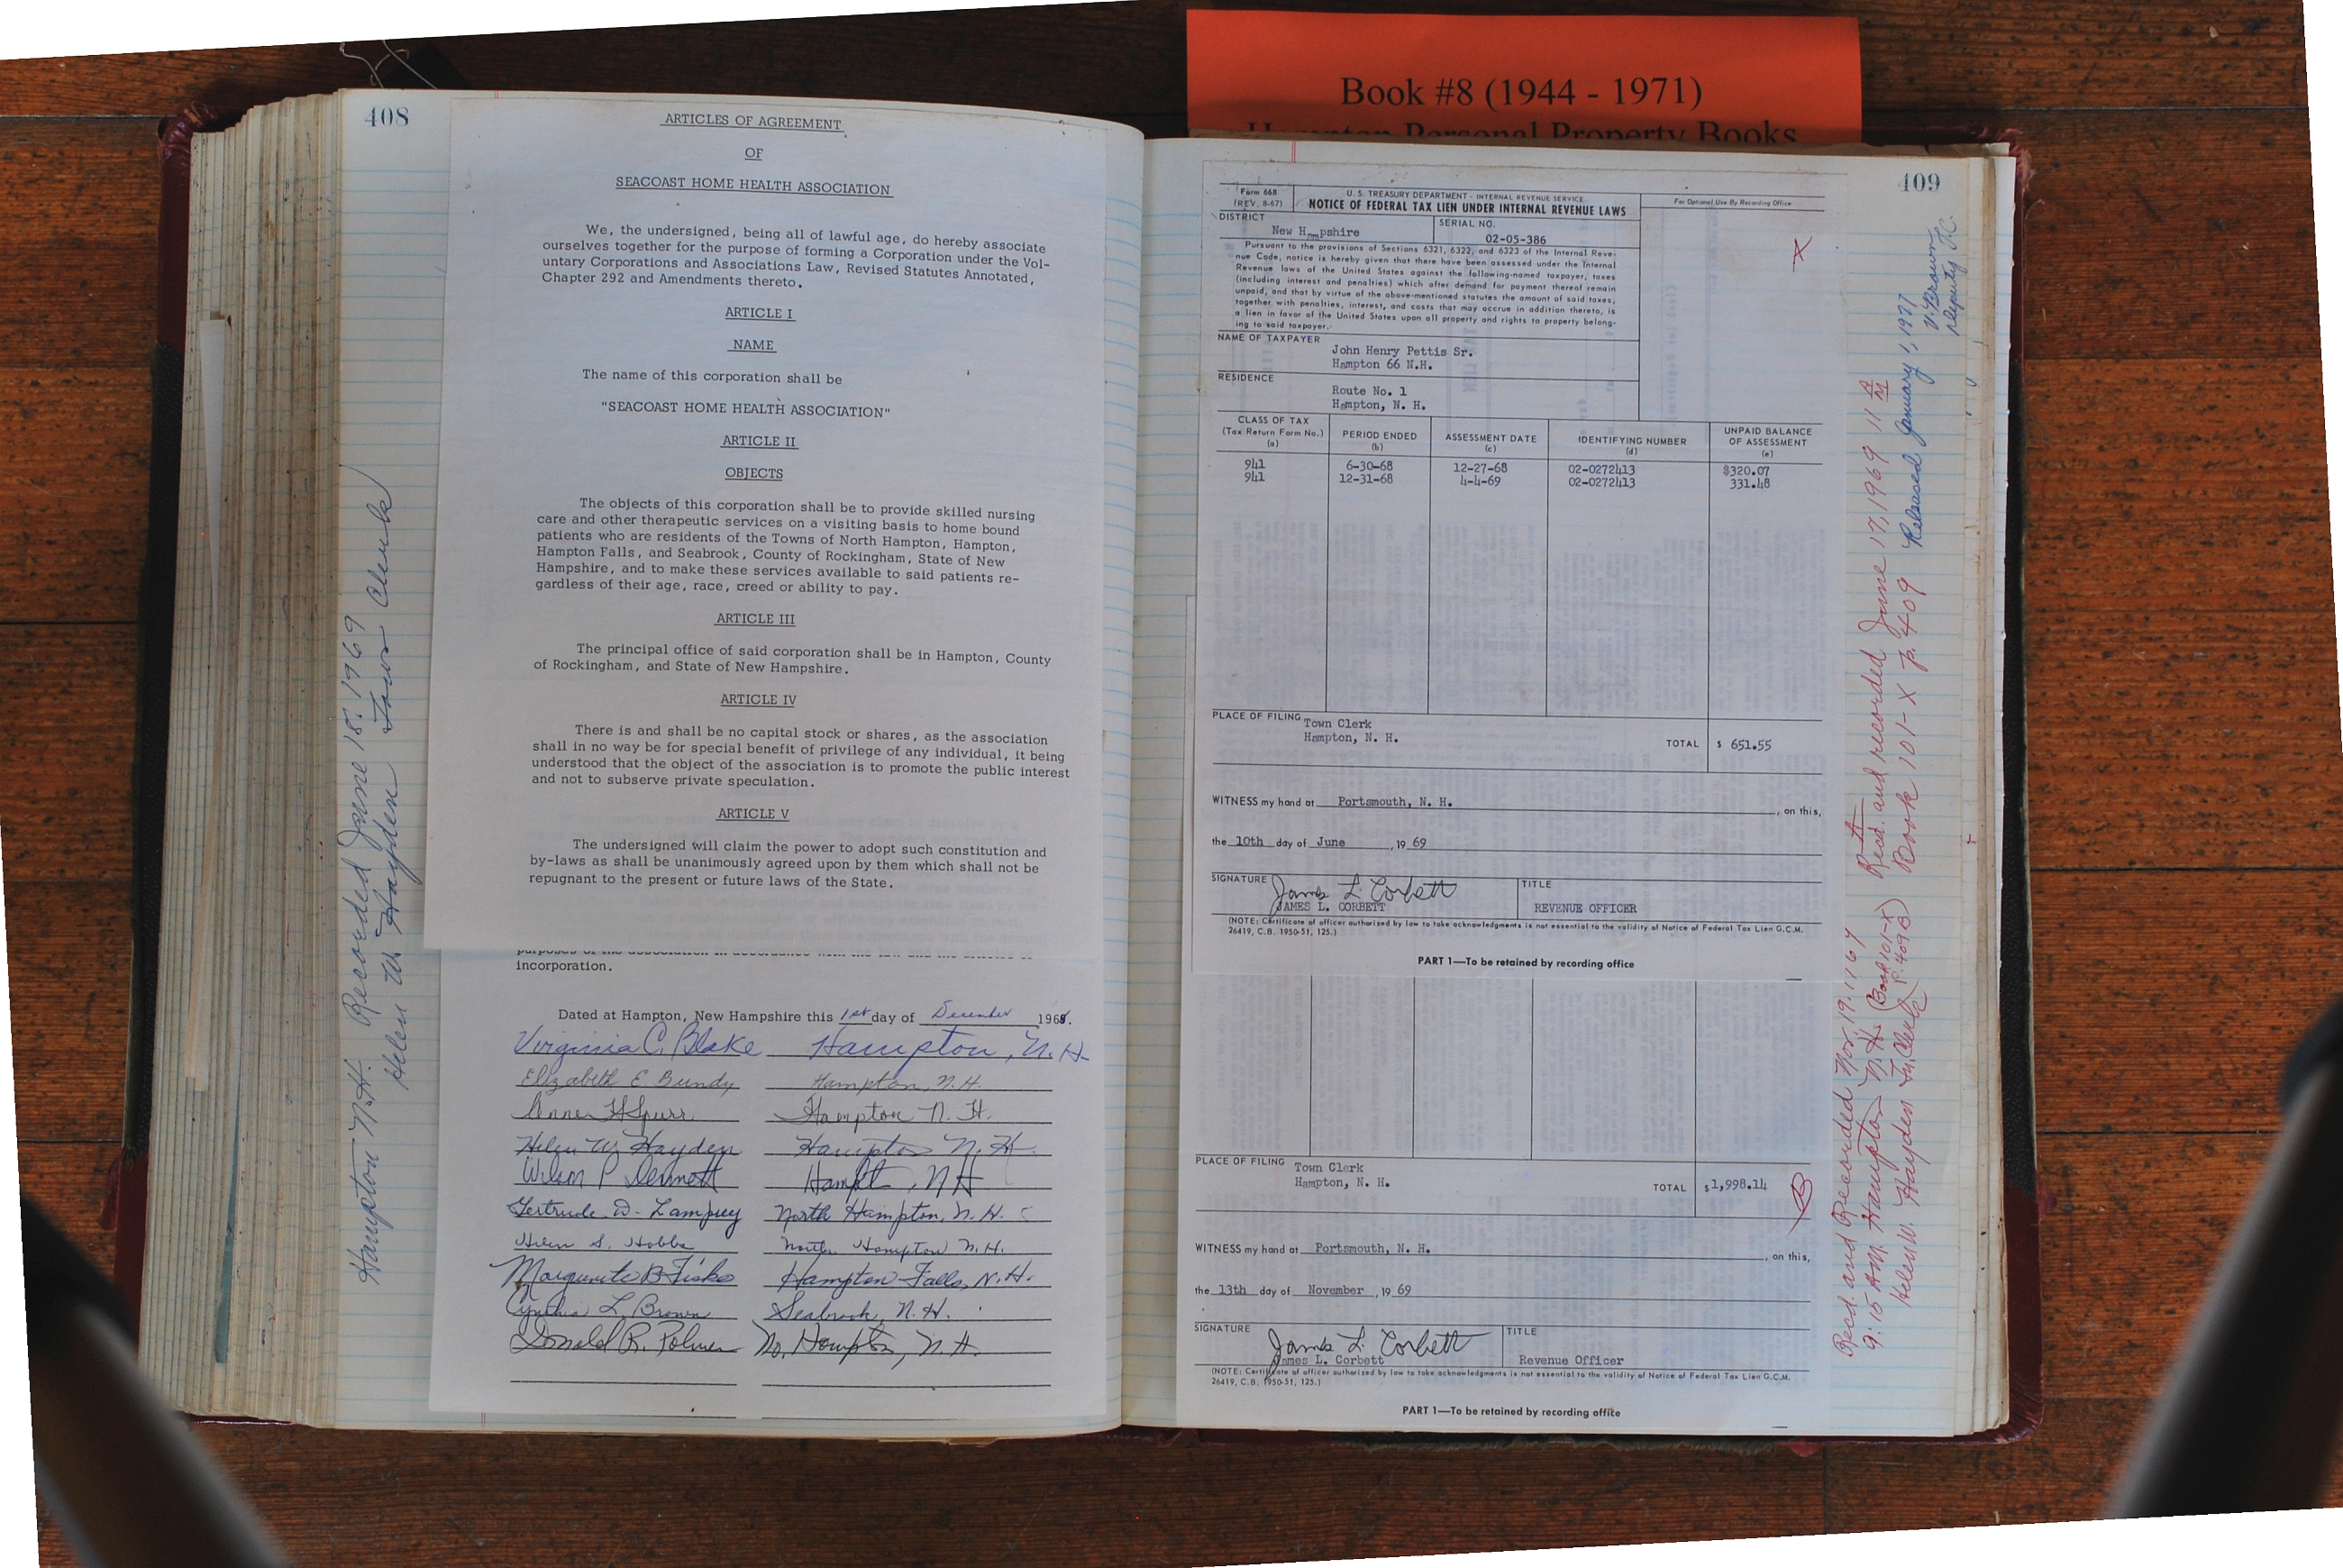 Book #8 (1944 - 1971)
Hampton Personal Property Books
408
ARTICLES OF AGREEMENT
OF
SEACOAST HOME HEALTH ASSOCIATION
We, the undersigned, being all of lawful age, do hereby associate
ourselves together for the purpose of forming a Corporation under the Vol-
untary Corporations and Associations Law, Revised Statutes Annotated,
Chapter 292 and Amendments thereto.
ARTICLE I
NAME
The name of this corporation shall be
"SEACOAST HOME HEALTH ASSOCIATION"
ARTICLE II
OBJECTS
The objects of this corporation shall be to provide skilled nursing
care and other therapeutic services on a visiting basis to home bound
patients who are residents of the Towns of North Hampton, Hampton,
Hampton Falls, and Seabrook, County of Rockingham, State of New
Hampshire, and to make these services available to said patients re-
gardless of their age, race, creed or ability to pay.
ARTICLE III
The principal office of said corporation shall be in Hampton, County
of Rockingham, and State of New Hampshire.
ARTICLE IV
There is and shall be no capital stock or shares, as the association
shall in no way be for special benefit of privilege of any individual, it being
understood that the object of the association is to promote the public interest
and not to subserve private speculation.
ARTICLE V
The undersigned will claim the power to adopt such constitution and
by-laws as shall be unanimously agreed upon by them which shall not be
repugnant to the present or future laws of the State.
incorporation.
Dated at Hampton, New Hampshire this 1st day of December 1968.
Virginia C. Blake Hampton, N.H.
Elizabeth E Bundy Hampton, N.H.
Anne H Spurr Hampton N.H.
Helen W. Hayden Hampton N.H.
Hampt, NH
Gertrude D. Lamprey North Hampton, N.H.
Helen S. Hobbs North Hampton N.H.
Marguerite B Fiske Hampton Falls, N.H.
Cynthia L. Brown Seabrook, N.H.
Donald R. Palmer No. Hampton, N.H.
Hampton N.H. Recorded June 18, 1969
Helen W. Hayden Town Clerk
409
Form 668
(REV. 8-67)
U. S. TREASURY DEPARTMENT - INTERNAL REVENUE SERVICE
NOTICE OF FEDERAL TAX LIEN UNDER INTERNAL REVENUE LAWS
For Optional Use By Recording Office
DISTRICT
New Hampshire
SERIAL NO.
02-05-386
Pursuant to the provisions of Sections 6321, 6322, and 6323 of the Internal Reve-
nue Code, notice is hereby given that there have been assessed under the Internal
Revenue laws of the United States against the following-named taxpayer, taxes
(including interest and penalties) which after demand for payment thereof remain
unpaid, and that by virtue of the above-mentioned statutes the amount of said taxes,
together with penalties, interest, and costs that may accrue in addition thereto, is
a lien in favor of the United States upon all property and rights to property belong-
ing to said taxpayer.
NAME OF TAXPAYER
John Henry Pettis Sr.
Hampton 66 N.H.
RESIDENCE
Route No. 1
Hampton, N. H.
CLASS OF TAX (Tax Return Form No.) (a)
PERIOD ENDED (b)
ASSESSMENT DATE (c)
IDENTIFYING NUMBER (d)
UNPAID BALANCE OF ASSESSMENT (e)
941 6-30-68 12-27-68 02-0272413 $320.07
941 12-31-68 4-4-69 02-0272413 331.48
PLACE OF FILING
Town Clerk
Hampton, N. H.
TOTAL $ 651.55
WITNESS my hand at Portsmouth, N. H. , on this,
the 10th day of June , 19 69
SIGNATURE James L. Corbett
JAMES L. CORBETT
TITLE
REVENUE OFFICER
(NOTE: Certificate of officer authorized by law to take acknowledgments is not essential to the validity of Notice of Federal Tax Lien G.C.M.
26419, C.B. 1950-51, 125.)
PART 1—To be retained by recording office
PLACE OF FILING
Town Clerk
Hampton, N. H.
TOTAL $1,998.14
B
WITNESS my hand at Portsmouth, N. H. , on this,
the 13th day of November , 19 69
SIGNATURE James L. Corbett
James L. Corbett
TITLE
Revenue Officer
(NOTE: Certificate of officer authorized by law to take acknowledgments is not essential to the validity of Notice of Federal Tax Lien G.C.M.
26419, C.B. 1950-51, 125.)
PART 1—To be retained by recording office
A
Recd. and recorded June 17, 1969 11 AM
Book 101-X p. 409
Released January 1, 1977
V. Brown
Deputy T.C.
Recd. and Recorded Nov. 19,
9:15 A.M. Hampton N.H. (Book 101-X
Helen W. Hayden Tn. Clerk P. 409B)